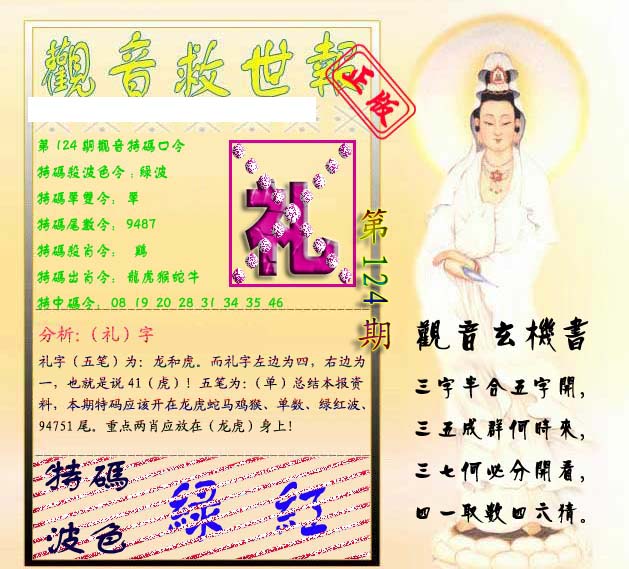 觀音救世報
正版
第124期觀音特碼口令
特碼殺波色令：綠波
特碼單雙令： 單
特碼尾數令： 9487
特碼殺肖令： 鷄
特碼出肖令： 龍虎猴蛇牛
特中碼令： 08 19 20 28 31 34 35 46
礼
第124期
分析:（礼）字
礼字（五笔）为：龙和虎。而礼字左边为四，右边为
一，也就是说 41（虎）！五笔为：（单）总结本报资
料，本期特码应该开在龙虎蛇马鸡猴、单数、绿红波、
94751 尾。重点两肖应放在（龙虎）身上！
特碼
波色
綠 紅
觀音玄機書
三字半合五字開，
三五成群何時來，
三七何必分開看，
四一取數四六猜。